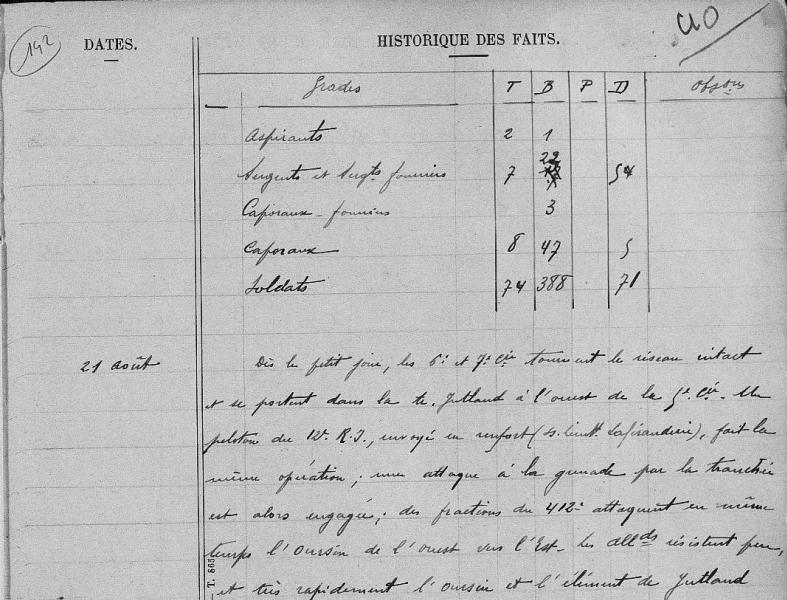 142
40
DATES.
HISTORIQUE DES FAITS.
Grades T B P D Obsons
Aspirants 2 1
Sergents et Sergts fourriers 7 22 5
Caporaux-fourriers 3
Caporaux 8 47 5
Soldats 74 388 71
21 août
Dès le petit jour, les 6e et 7e Cie tournent le réseau intact
et se portent dans la te. Jutland à l'ouest de la 5e Cie. Un
peloton du 12e R.I., envoyé en renfort (s. lieutt. Laférandrie), fait la
même opération ; une attaque à la grenade par la tranchée
est alors engagée ; des fractions du 412e attaquent en même
temps l'oursin de l'ouest vers l'Est - les allds résistent peu,
et très rapidement l'oursin et l'élément de Jutland
T. 865